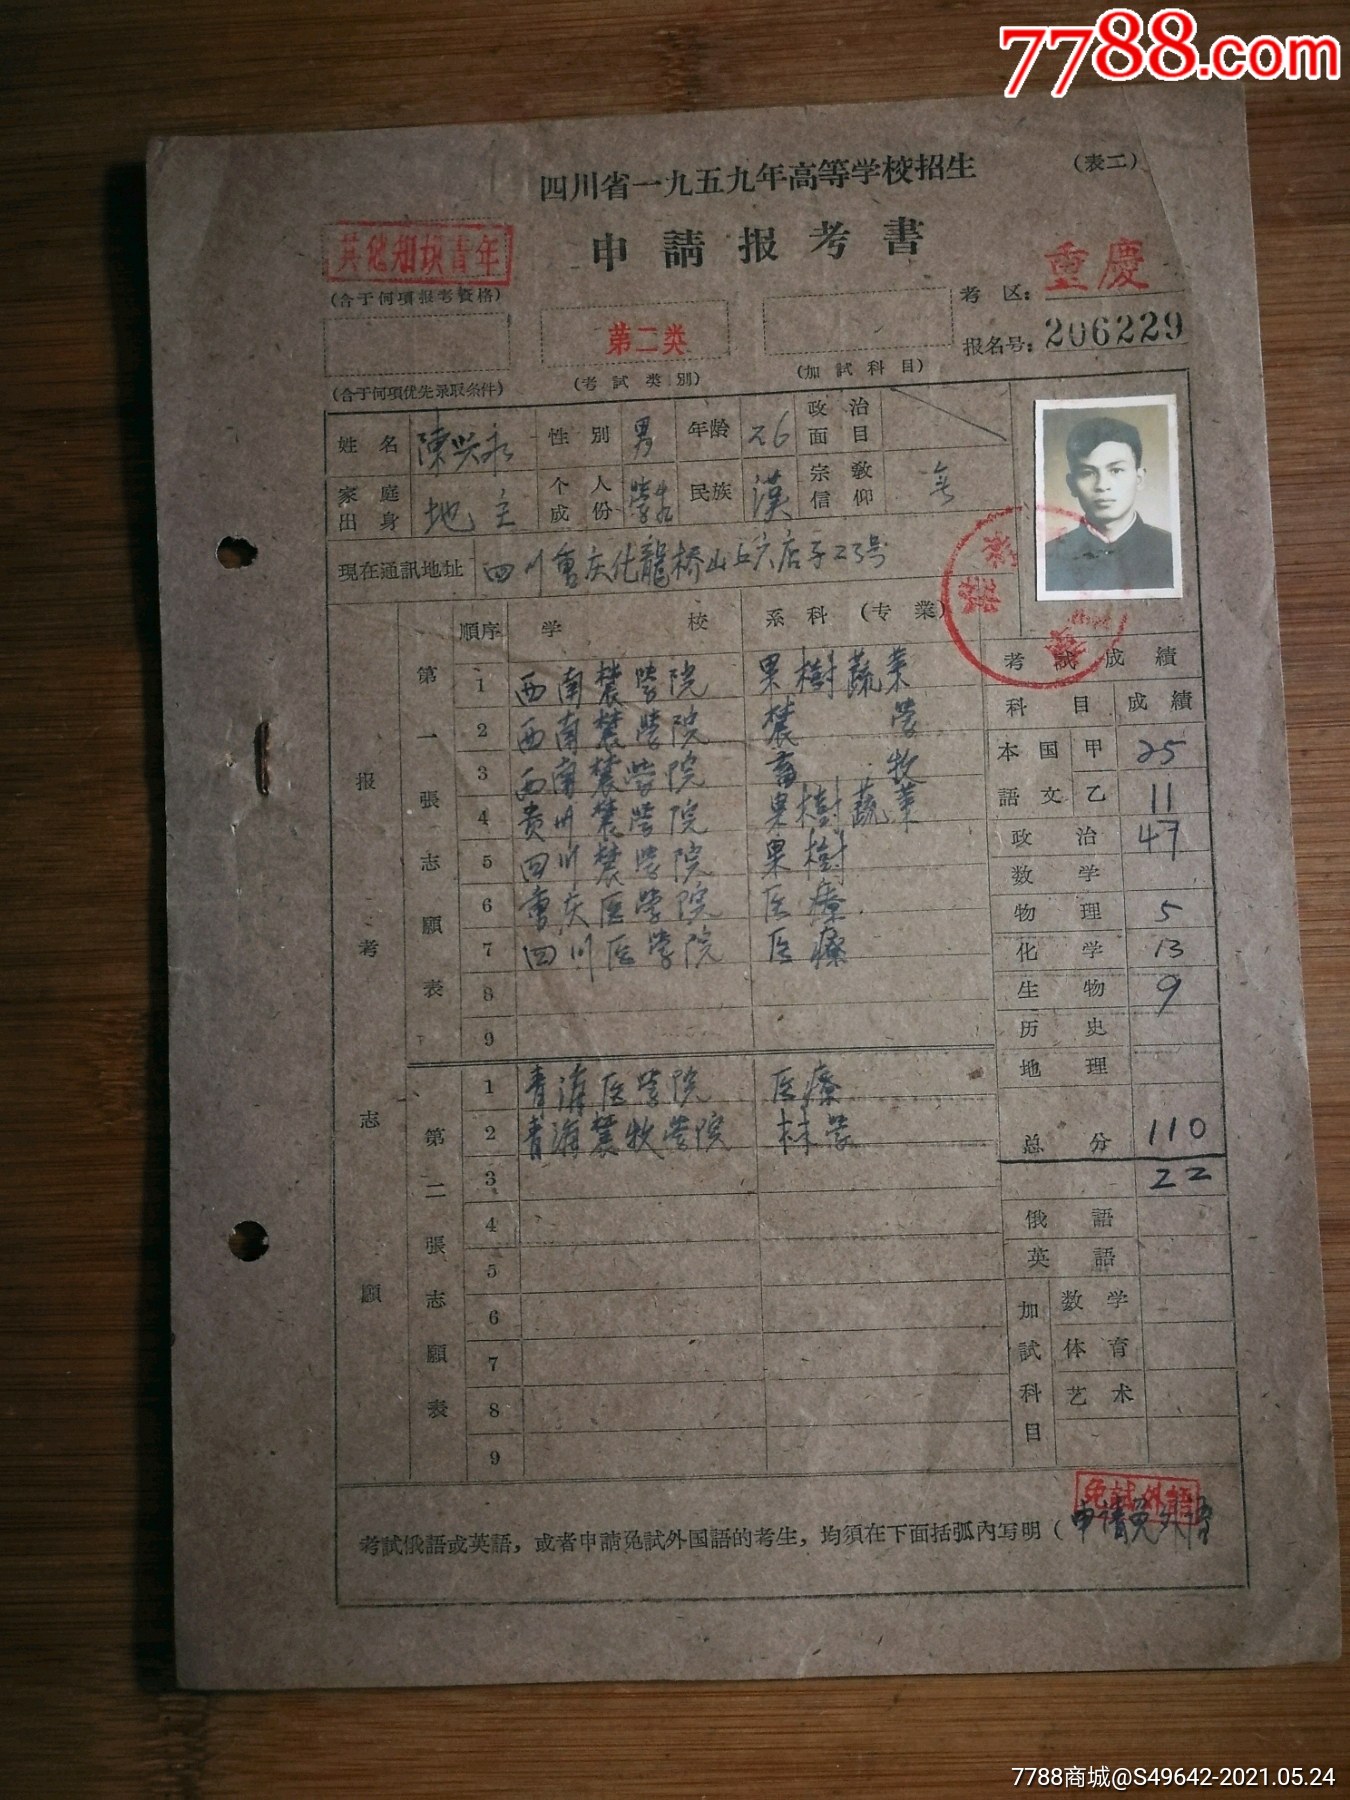 7788.com
四川省一九五九年高等学校招生
(表二)
申請报考書
其他知识青年
(合于何項报考資格)
考区: 重慶
报名号: 206229
第二类
(合于何項优先录取条件)
(考試类別)
(加試科目)
姓名 陳兴永 性別 男 年龄 26 政治面目
家庭出身 地主 个人成份 学生 民族 漢 宗教信仰 无
現在通訊地址 四川重庆化龍桥山
報考志願
第一張志願表
順序 学校 系科(专業)
1 西南農学院 果樹蔬菜
2 西南農学院 農学
3 西南農学院 畜牧
4 贵州農学院 果樹蔬菜
5 四川農学院 果樹
6 重庆医学院 医療
7 四川医学院 医療
8
9
第二張志願表
1 青海医学院 医療
2 青海農牧学院 林学
3
4
5
6
7
8
9
考試成績
科目 成績
本国語文 甲 25
乙 11
政治 47
数学
物理 5
化学 13
生物 9
历史
地理
总分 110
22
俄語
英語
加試科目
数学
体育
艺术
免試外語
考試俄語或英語,或者申請免試外国語的考生,均須在下面括弧內写明(申请免外語
7788商城@S49642-2021.05.24